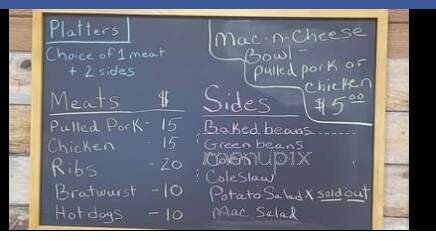 Platters
Choice of 1 meat
+ 2 sides
Mac-n-Cheese
Bowl
Pulled pork or
Chicken
$5.00
Meats $
Pulled Pork - 15
Chicken 15
Ribs - 20
Bratwurst - 10
Hotdogs - 10
Sides
Baked beans
Green beans
Corn
menupix
Coleslaw
Potato Salad X sold out
Mac Salad